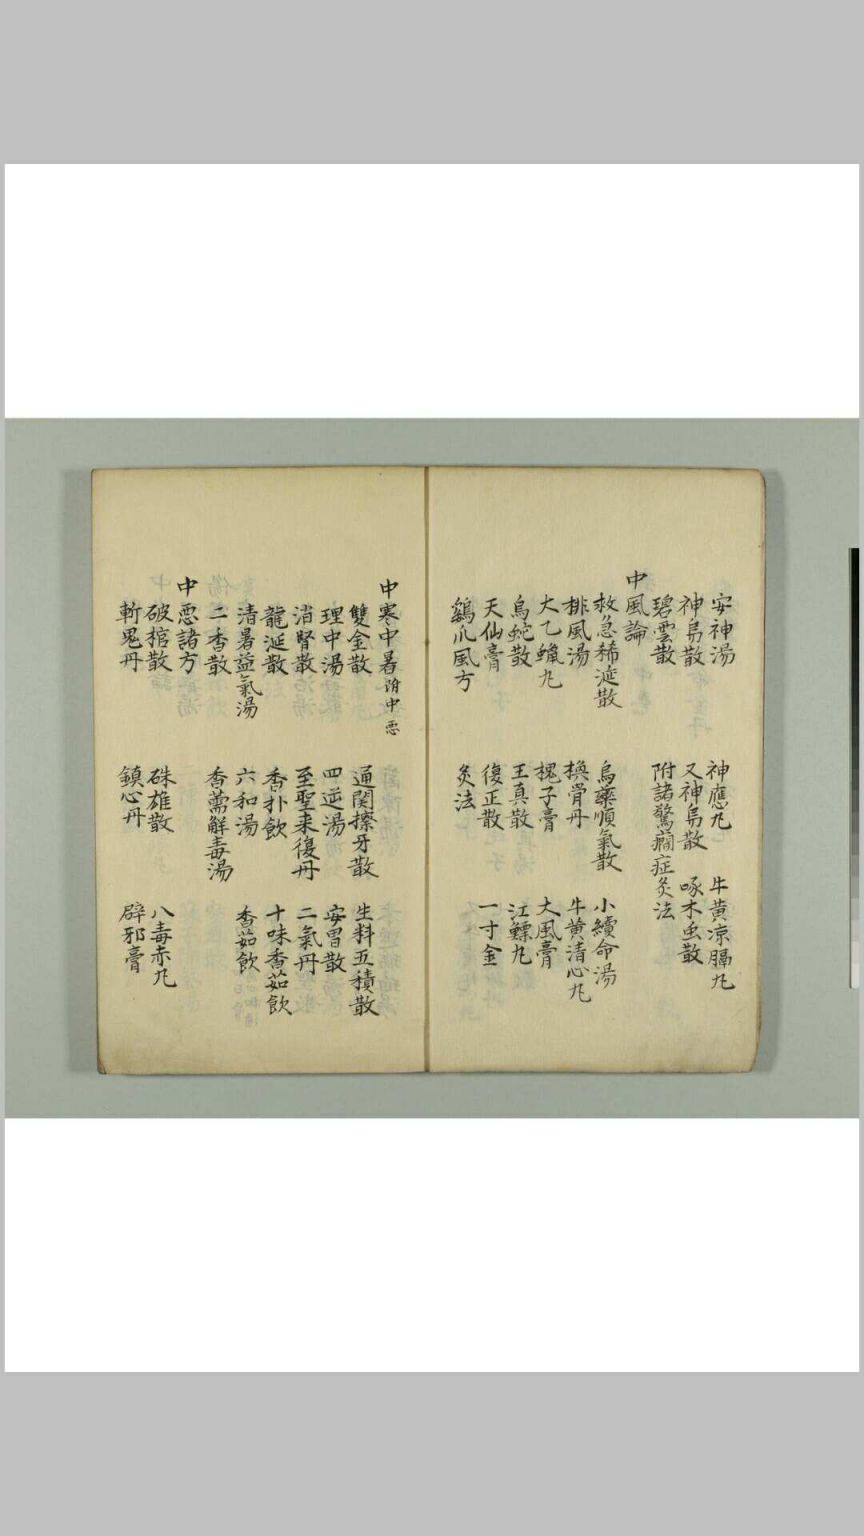 安神湯 神應九 牛黄凉膈九
神㒵散 又神㒵散 啄木虫散
碧雲散 附諸驚癇症灸法
中風論
救急稀涎散 烏藥順氣散 小續命湯
排風湯 換骨丹 牛黄清心九
大乙蠟九 槐子膏 大風膏
烏蛇散 王真散 江鰾九
天仙膏 復正散 一寸金
鷄爪風方 灸法
中寒中暑附中惡
雙金散 通関擦牙散 生料五積散
理中湯 四逆湯 安胃散
消腎散 至聖来復丹 二氣丹
龍涎散 香朴飲 十味香茹飲
清暑益氣湯 六和湯 香茹飲
二香散 香薷解毒湯
中惡諸方
破棺散 硃雄散 八毒赤九
斬鬼丹 鎮心丹 辟邪膏